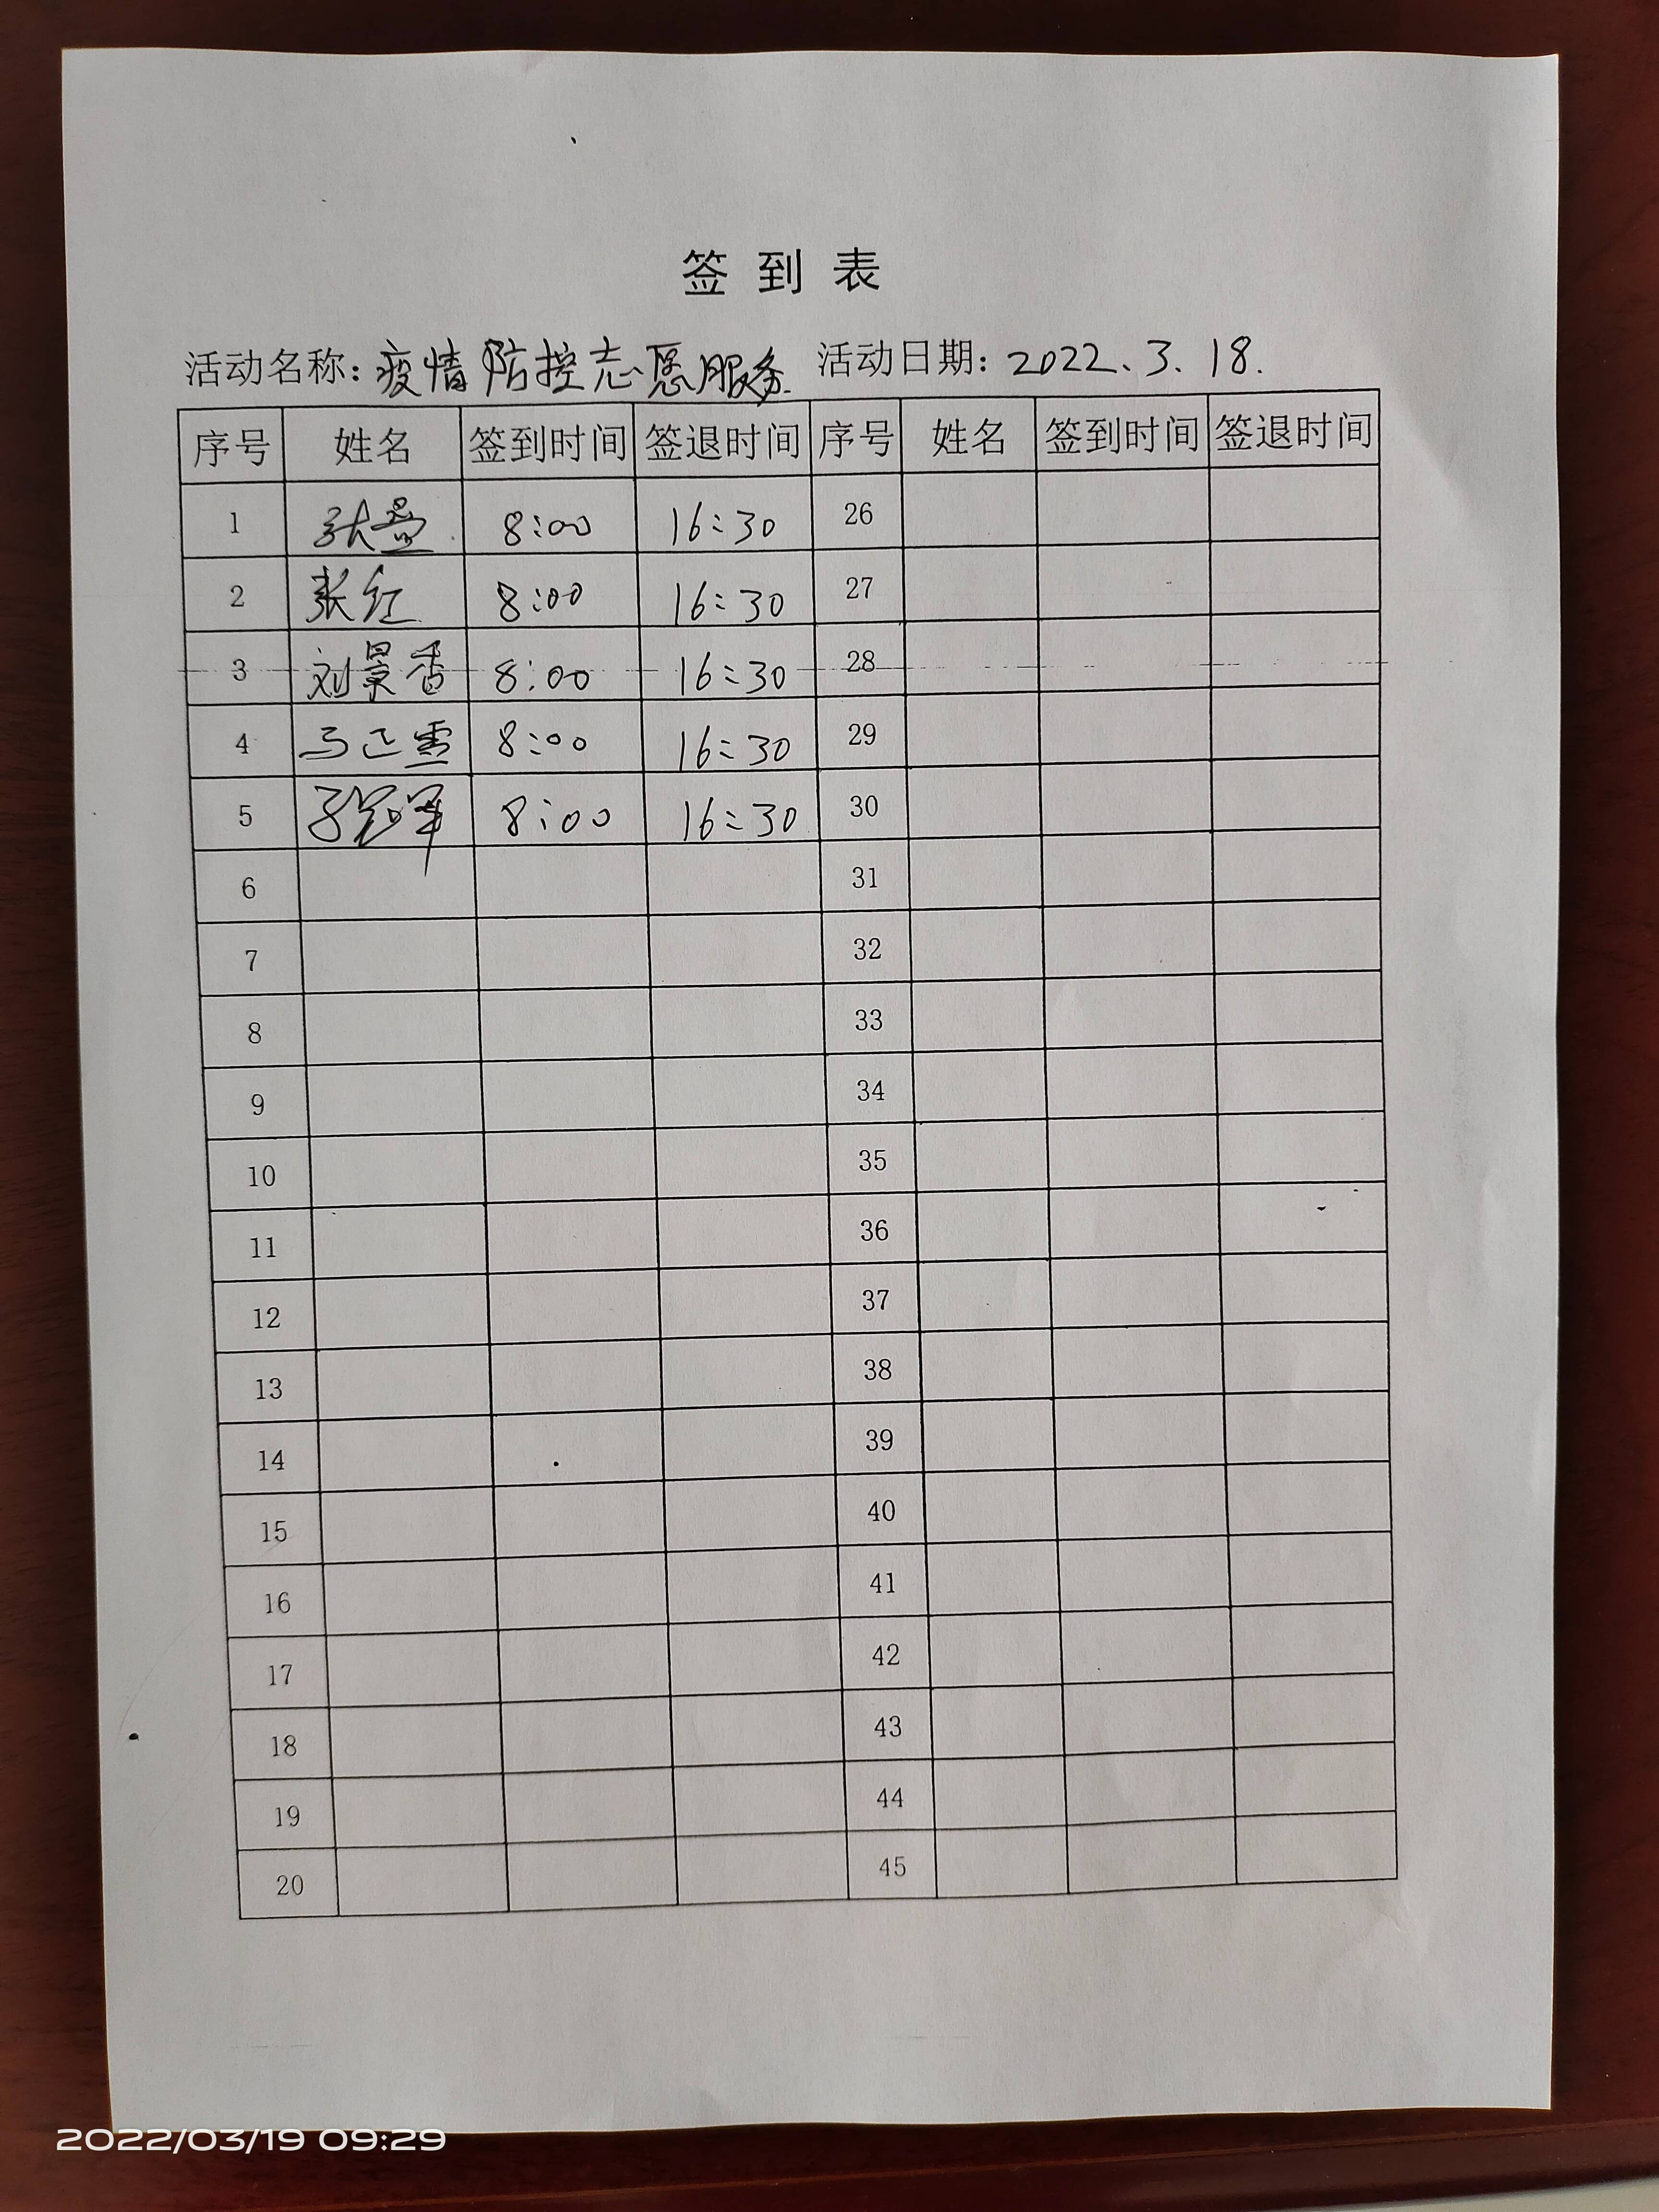 签到表
活动名称：疫情防控志愿服务 活动日期：2022.3.18.
序号 姓名 签到时间 签退时间 序号 姓名 签到时间 签退时间
1 张 8:00 16:30 26
2 张红 8:00 16:30 27
3 刘景香 8:00 16:30 28
4 马正雪 8:00 16:30 29
5 8:00 16:30 30
6 31
7 32
8 33
9 34
10 35
11 36
12 37
13 38
14 39
15 40
16 41
17 42
18 43
19 44
20 45
2022/03/19 09:29